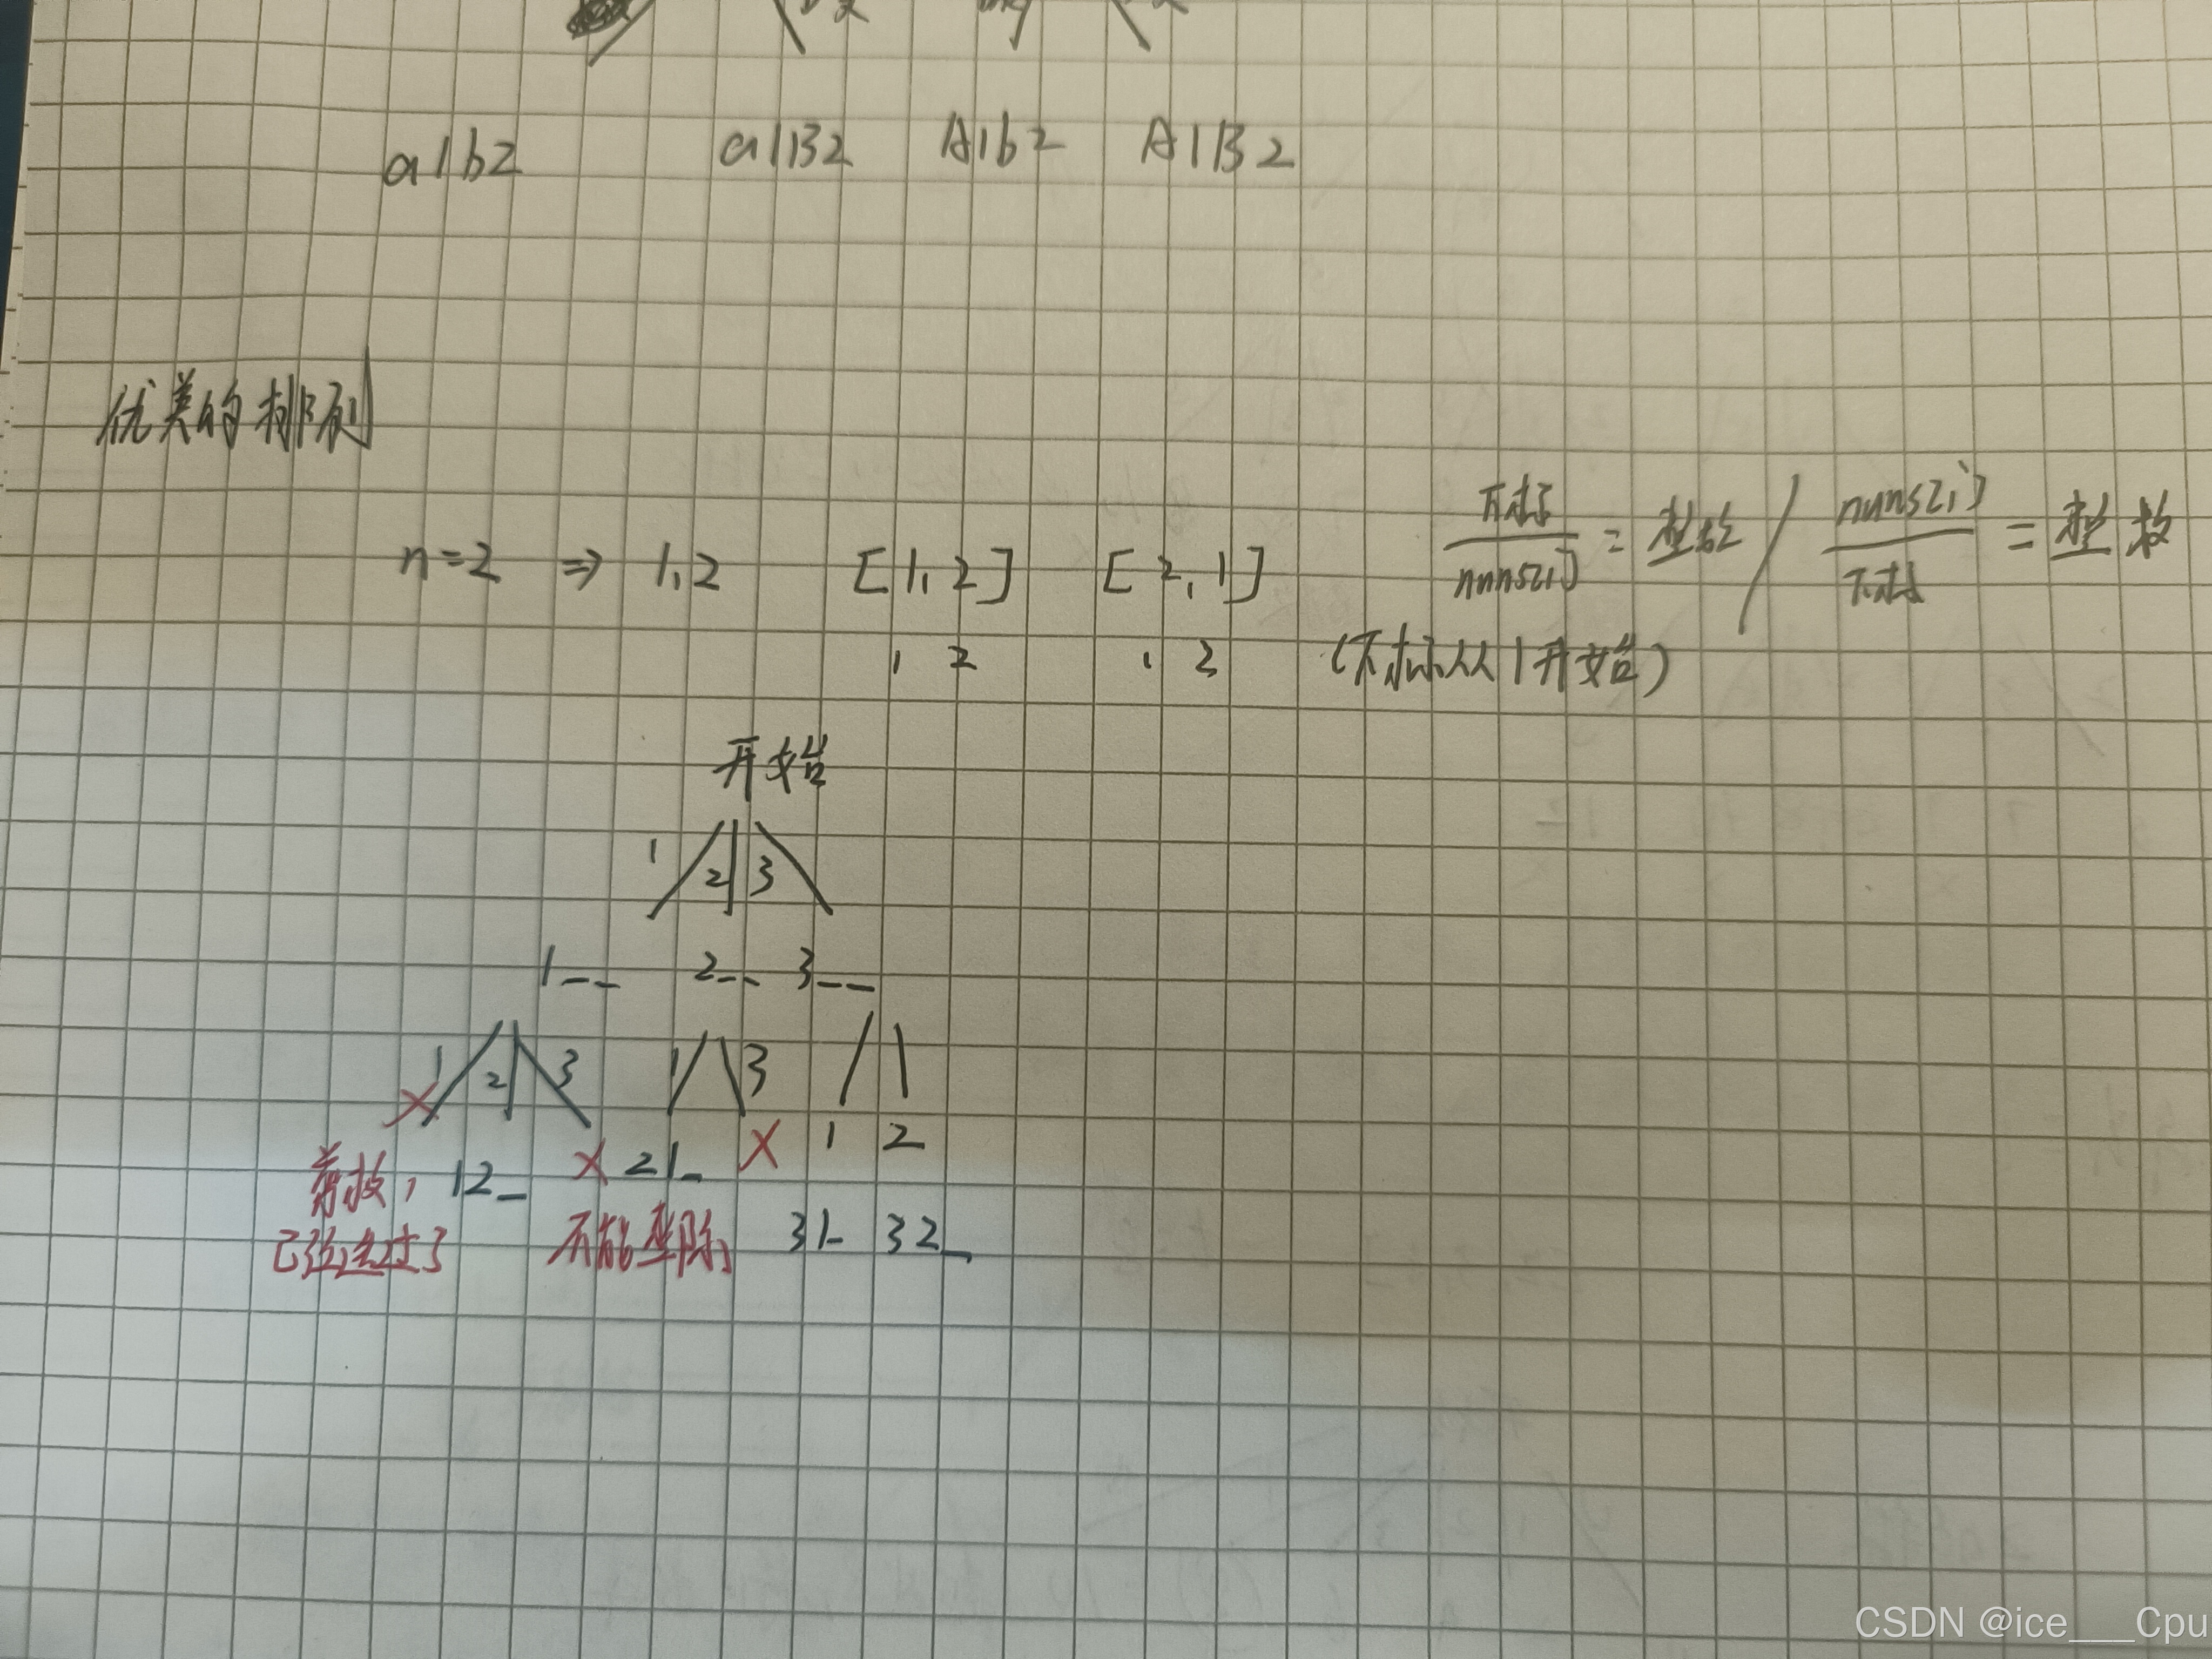 a1b2 a1B2 A1b2 A1B2
优美的排列
下标/nums[i] = 整数 / nums[i]/下标 = 整数
n=2 ⇒ 1,2 [1,2] [2,1]
1 2 1 2 (下标从1开始)
开始
1 2 3
1__ 2__ 3__
1 2 3 1 3
X X 21_ X 1 2
剪枝, 12_
已经选过了 不能整除 31_ 32_
CSDN @ice___Cpu